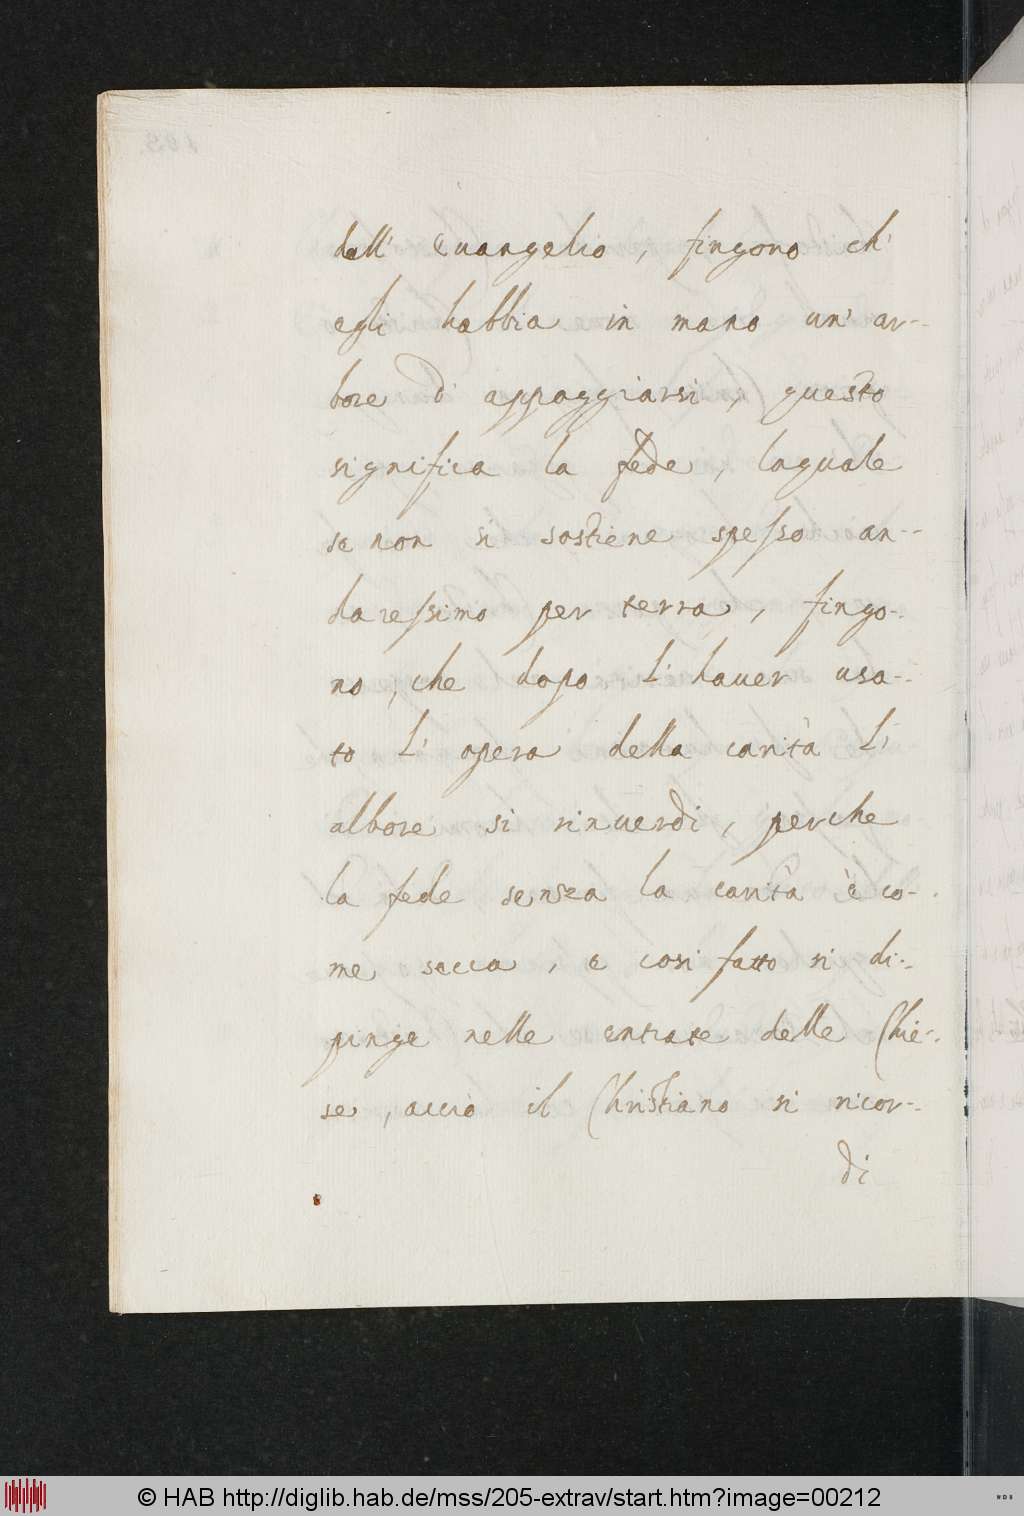 dell' Euangelio, fingono ch'
egli habbia in mano un' ar-
bore d' appoggiarsi, questo
significa la fede, laquale
se non si sostiene spesso an-
daressimo per terra, fingo-
no, che dopo l' hauer usa-
to l' opera della carità l'
albore si rinuerdi, perche
la fede senza la carità è co-
me secca, e cosi fatto si di-
pinge nelle entrate delle Chie-
se, acciò il Christiano si ricor-
di
© HAB http://diglib.hab.de/mss/205-extrav/start.htm?image=00212